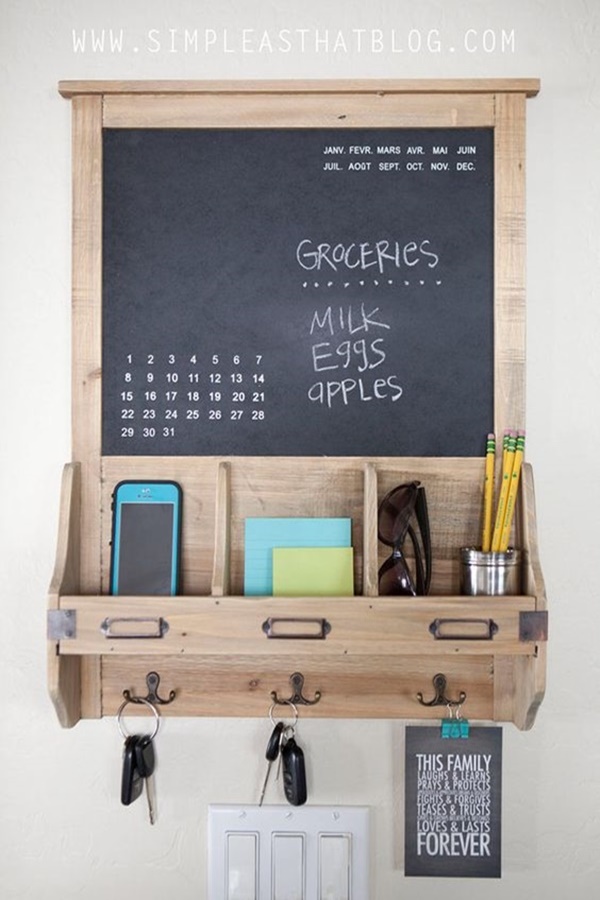 WWW.SIMPLEASTHATBLOG.COM
JANV. FEVR. MARS AVR. MAI JUIN
JUIL. AOÛT SEPT. OCT. NOV. DEC.
GROCERIES
MILK
Eggs
apples
1 2 3 4 5 6 7
8 9 10 11 12 13 14
15 16 17 18 19 20 21
22 23 24 25 26 27 28
29 30 31
THIS FAMILY
LAUGHS & LEARNS
PRAYS & PROTECTS
FIGHTS & FORGIVES
TEASES & TRUSTS
LOVES & LASTS
FOREVER